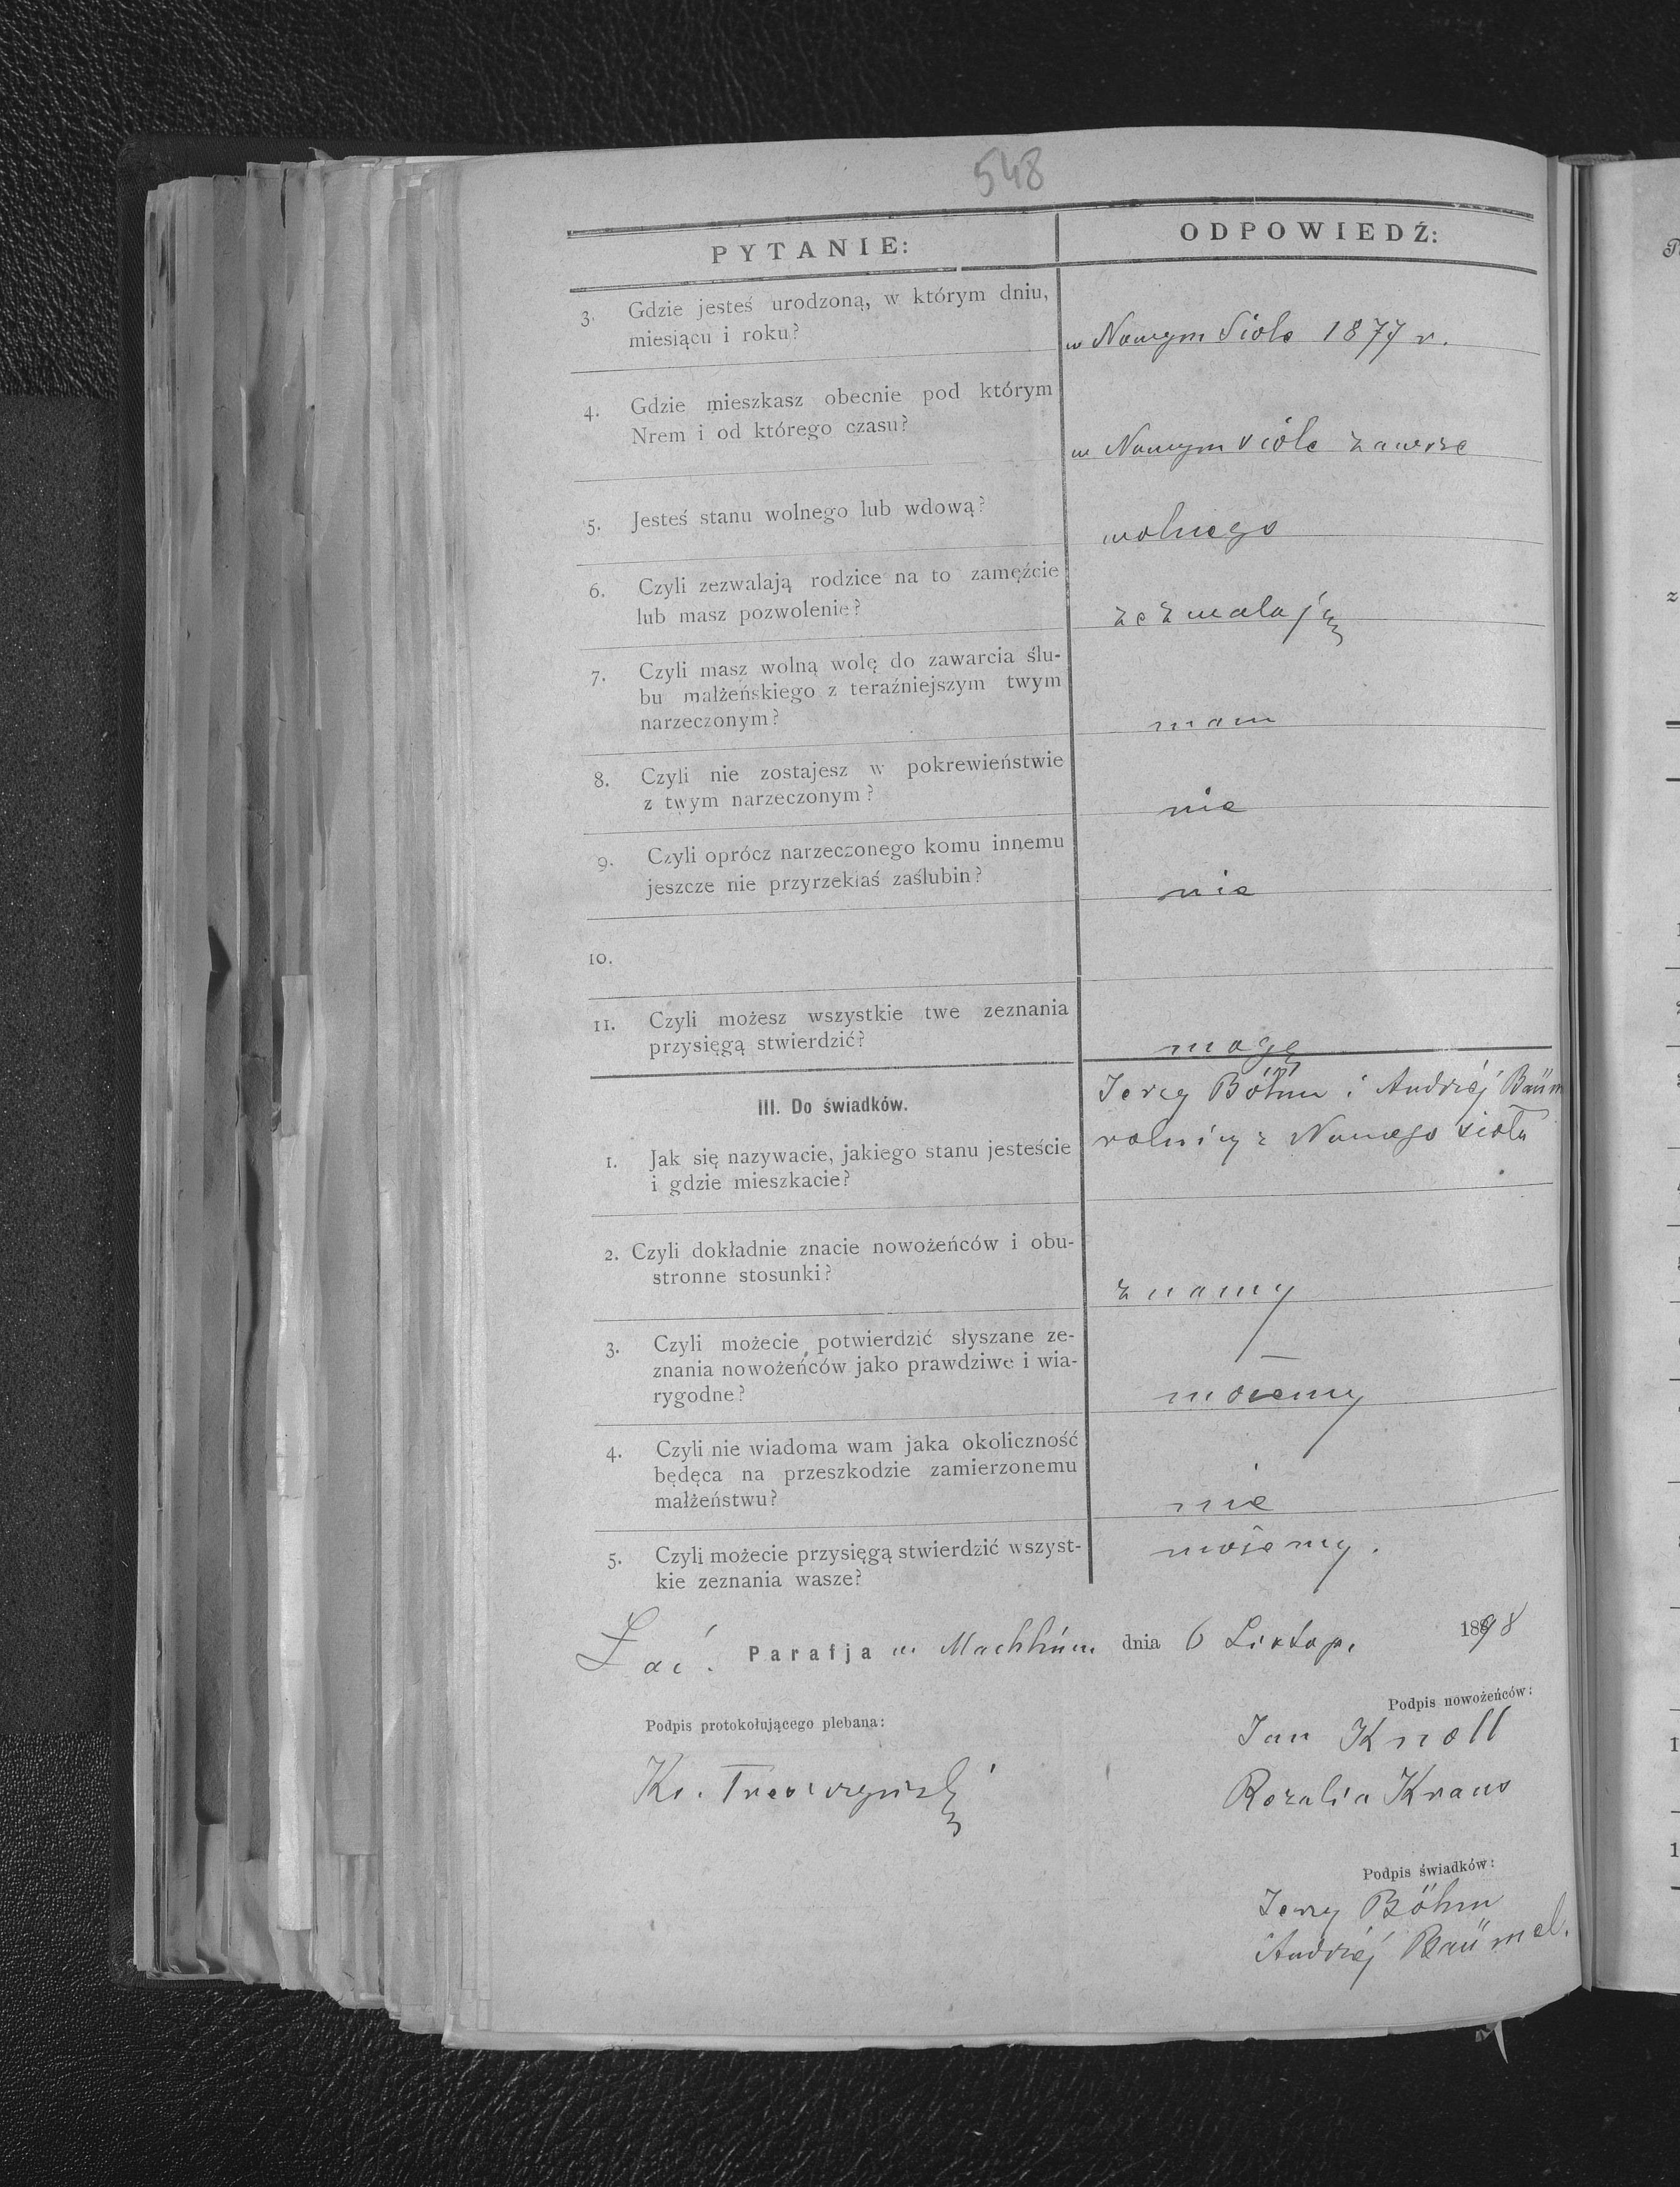 548
PYTANIE:
ODPOWIEDŹ:
3. Gdzie jesteś urodzoną, w którym dniu,
miesiącu i roku?
w Nowym Siole 1877 r.
4. Gdzie mieszkasz obecnie pod którym
Nrem i od którego czasu?
w Nowym siole zawsze
5. Jesteś stanu wolnego lub wdową?
wolnego
6. Czyli zezwalają rodzice na to zamęźcie
lub masz pozwolenie?
zezwalają
7. Czyli masz wolną wolę do zawarcia ślu-
bu małżeńskiego z teraźniejszym twym
narzeczonym?
mam
8. Czyli nie zostajesz w pokrewieństwie
z twym narzeczonym?
nie
9. Czyli oprócz narzeczonego komu innemu
jeszcze nie przyrzekłaś zaślubin?
nie
10.
11. Czyli możesz wszystkie twe zeznania
przysięgą stwierdzić?
mogę
III. Do świadków.
1. Jak się nazywacie, jakiego stanu jesteście
i gdzie mieszkacie?
Jerzy Böhm i Andrzéj Baüm
rolnicy z Nowego sioła
2. Czyli dokładnie znacie nowożeńców i obu-
stronne stosunki?
znamy
3. Czyli możecie potwierdzić słyszane ze-
znania nowożeńców jako prawdziwe i wia-
rygodne?
możemy
4. Czyli nie wiadoma wam jaka okoliczność
będęca na przeszkodzie zamierzonemu
małżeństwu?
nie
5. Czyli możecie przysięgą stwierdzić wszyst-
kie zeznania wasze?
możemy.
Łać. Parafja w dnia 6 Listop. 1898
Podpis nowożeńców:
Podpis protokołującego plebana:
Jan Knoll
Ks.
Rozalia Kraus
Podpis świadków:
Jerzy Böhm
Andrzéj Baümel.